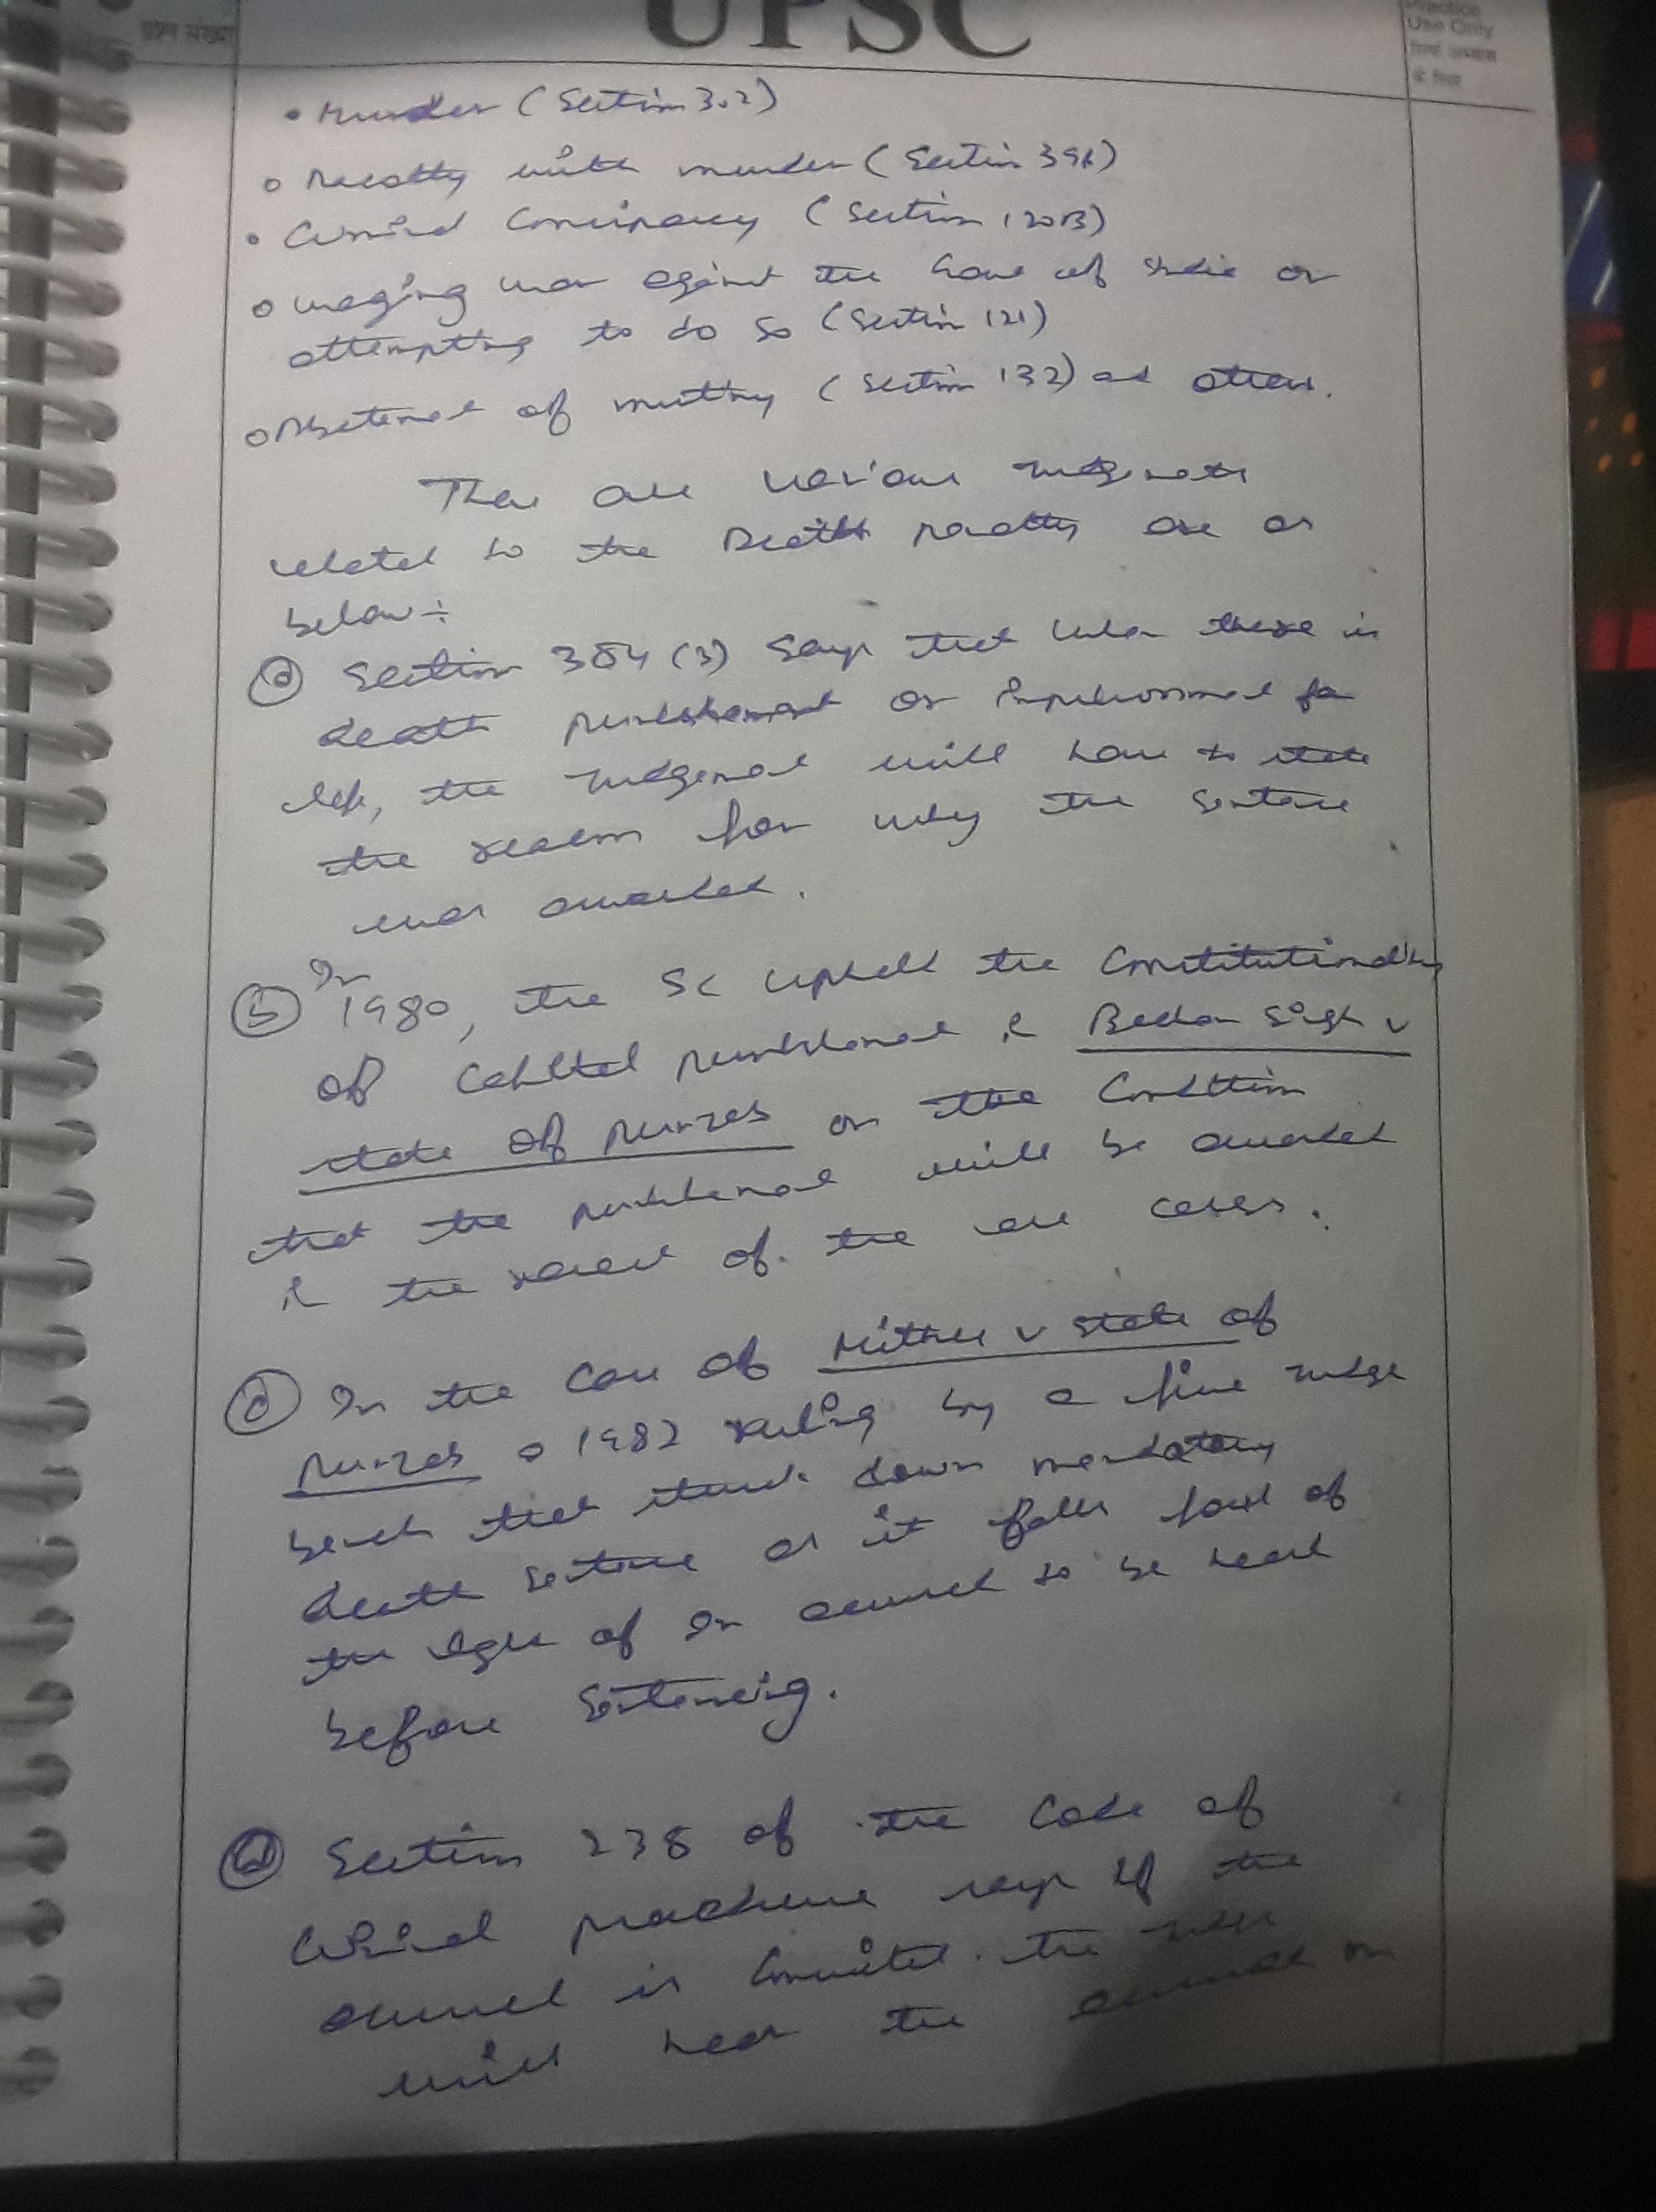 प्रश्न संख्या
UPSC
Practice
Use Only
सिर्फ अभ्यास
के लिए
• Murder (Section 302)
• Dacoity with murder (Section 396)
• Criminal Conspiracy (Section 120B)
• Waging war against the Govt of India or
attempting to do so (Section 121)
• Abetment of mutiny (Section 132) and others.
There are various Judgments
related to the Death Penalty are as
below:-
(a) Section 354 (3) says that when there is
death punishment or imprisonment for
life, the Judgement will have to state
the reason for why the sentence
was awarded.
(b) In 1980, the SC upheld the Constitutionality
of Capital punishment in Bachan Singh v
State of Punjab on the Condition
that the punishment will be awarded
in the rarest of the rare cases.
(c) In the case of Mithu v State of
Punjab a 1982 ruling by a five judge
bench that struck down mandatory
death sentence as it falls foul of
the right of an accused to be heard
before sentencing.
(d) Section 235 of the Code of
Criminal procedure says if the
accused is convicted. the judge
will hear the accused on